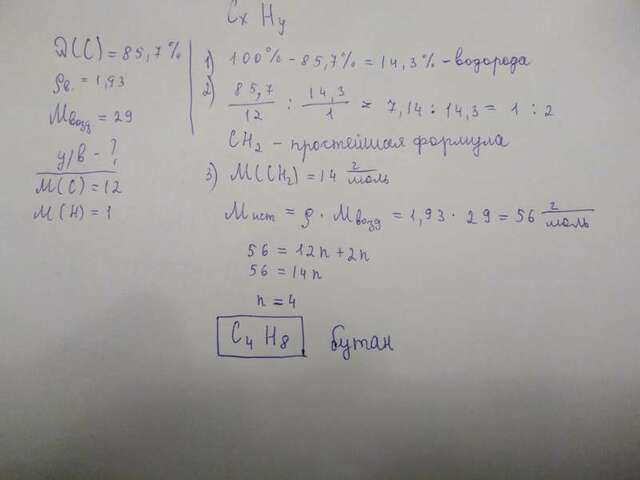 CxHy
D(C) = 85,7%
ρв. = 1,93
Mвозд = 29
у/в - ?
M(C) = 12
M(H) = 1
1) 100% - 85,7% = 14,3% - водорода
2) 85,7/12 : 14,3/1 = 7,14 : 14,3 = 1 : 2
CH2 - простейшая формула
3) M(CH2) = 14 г/моль
Mист = ρ · Mвозд = 1,93 · 29 = 56 г/моль
56 = 12n + 2n
56 = 14n
n = 4
C4H8 бутан